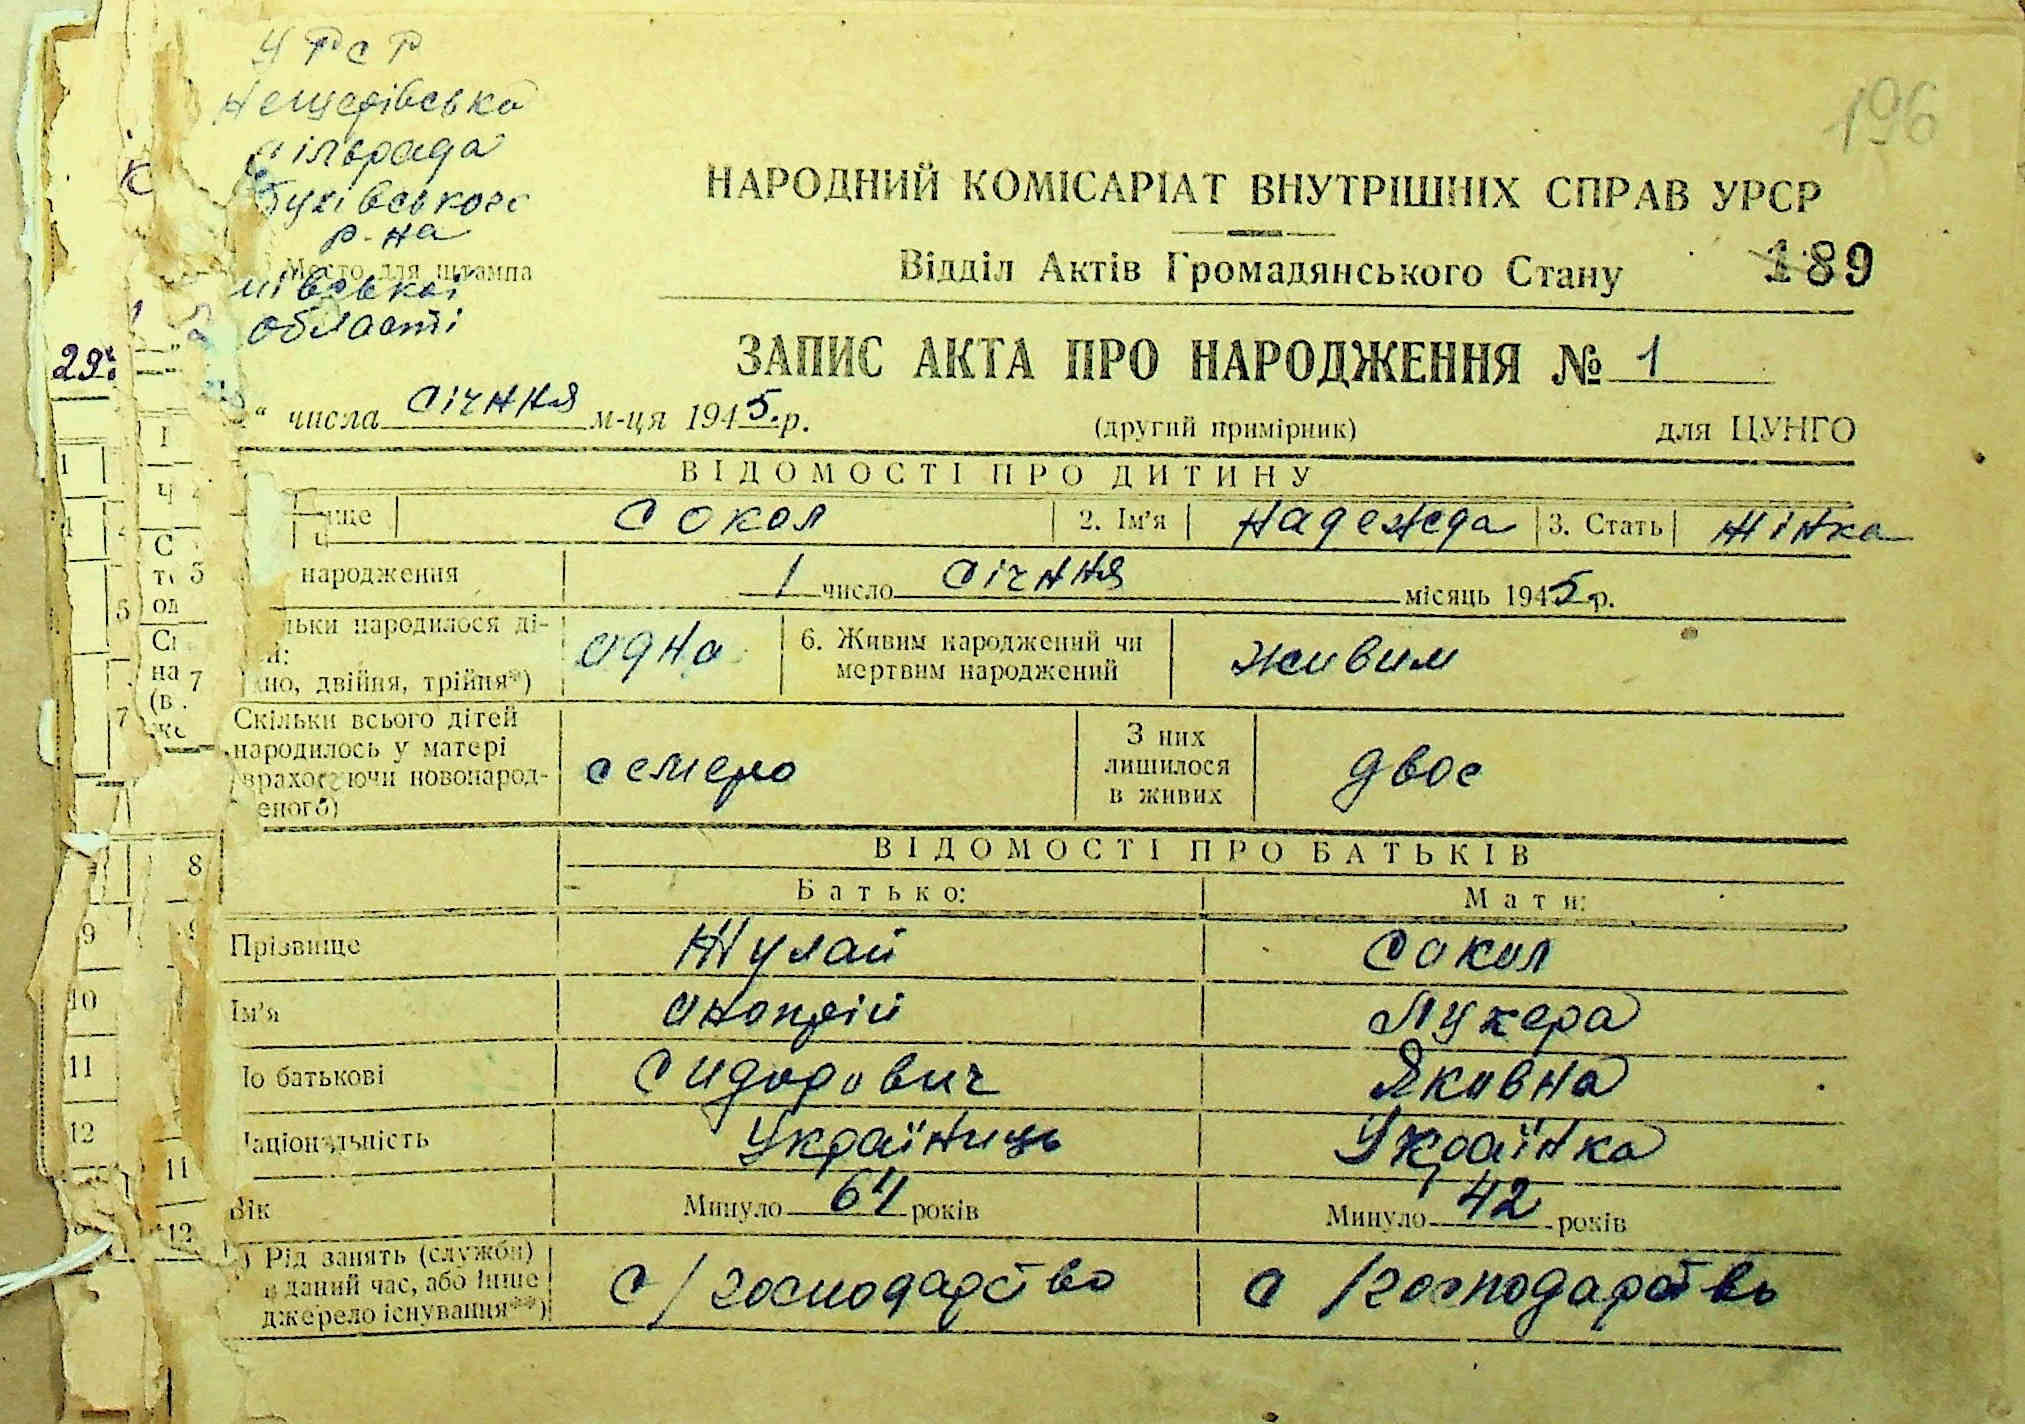 УРСР
Нещерівська
сільрада
бухівського
р-на
Место для штампа
ївської
області
196
НАРОДНИЙ КОМІСАРІАТ ВНУТРІШНІХ СПРАВ УРСР
Відділ Актів Громадянського Стану
189
ЗАПИС АКТА ПРО НАРОДЖЕННЯ № 1
29
" числа січня м-ця 1945.р.
(другий примірник)
для ЦУНГО
ВІДОМОСТІ ПРО ДИТИНУ
ище Сокол 2. Ім'я Надежда 3. Стать жінка
народження 1 число січня місяць 1945 р.
льки народилося ді-
й:
но, двійня, трійня*)
одна
6. Живим народжений чи
мертвим народжений
живим
Скільки всього дітей
народилось у матері
враховуючи новонарод-
еного)
семеро
З них
лишилося
в живих
двоє
ВІДОМОСТІ ПРО БАТЬКІВ
Батько: Мати:
Прізвище Жулай Сокол
Ім'я Онопрій Лукера
По батькові Сидорович Яковна
Національність Українець Українка
Вік Минуло 64 років Минуло 42 років
) Рід занять (служби)
в даний час, або інше
джерело існування**)
с/господарство с/господарство